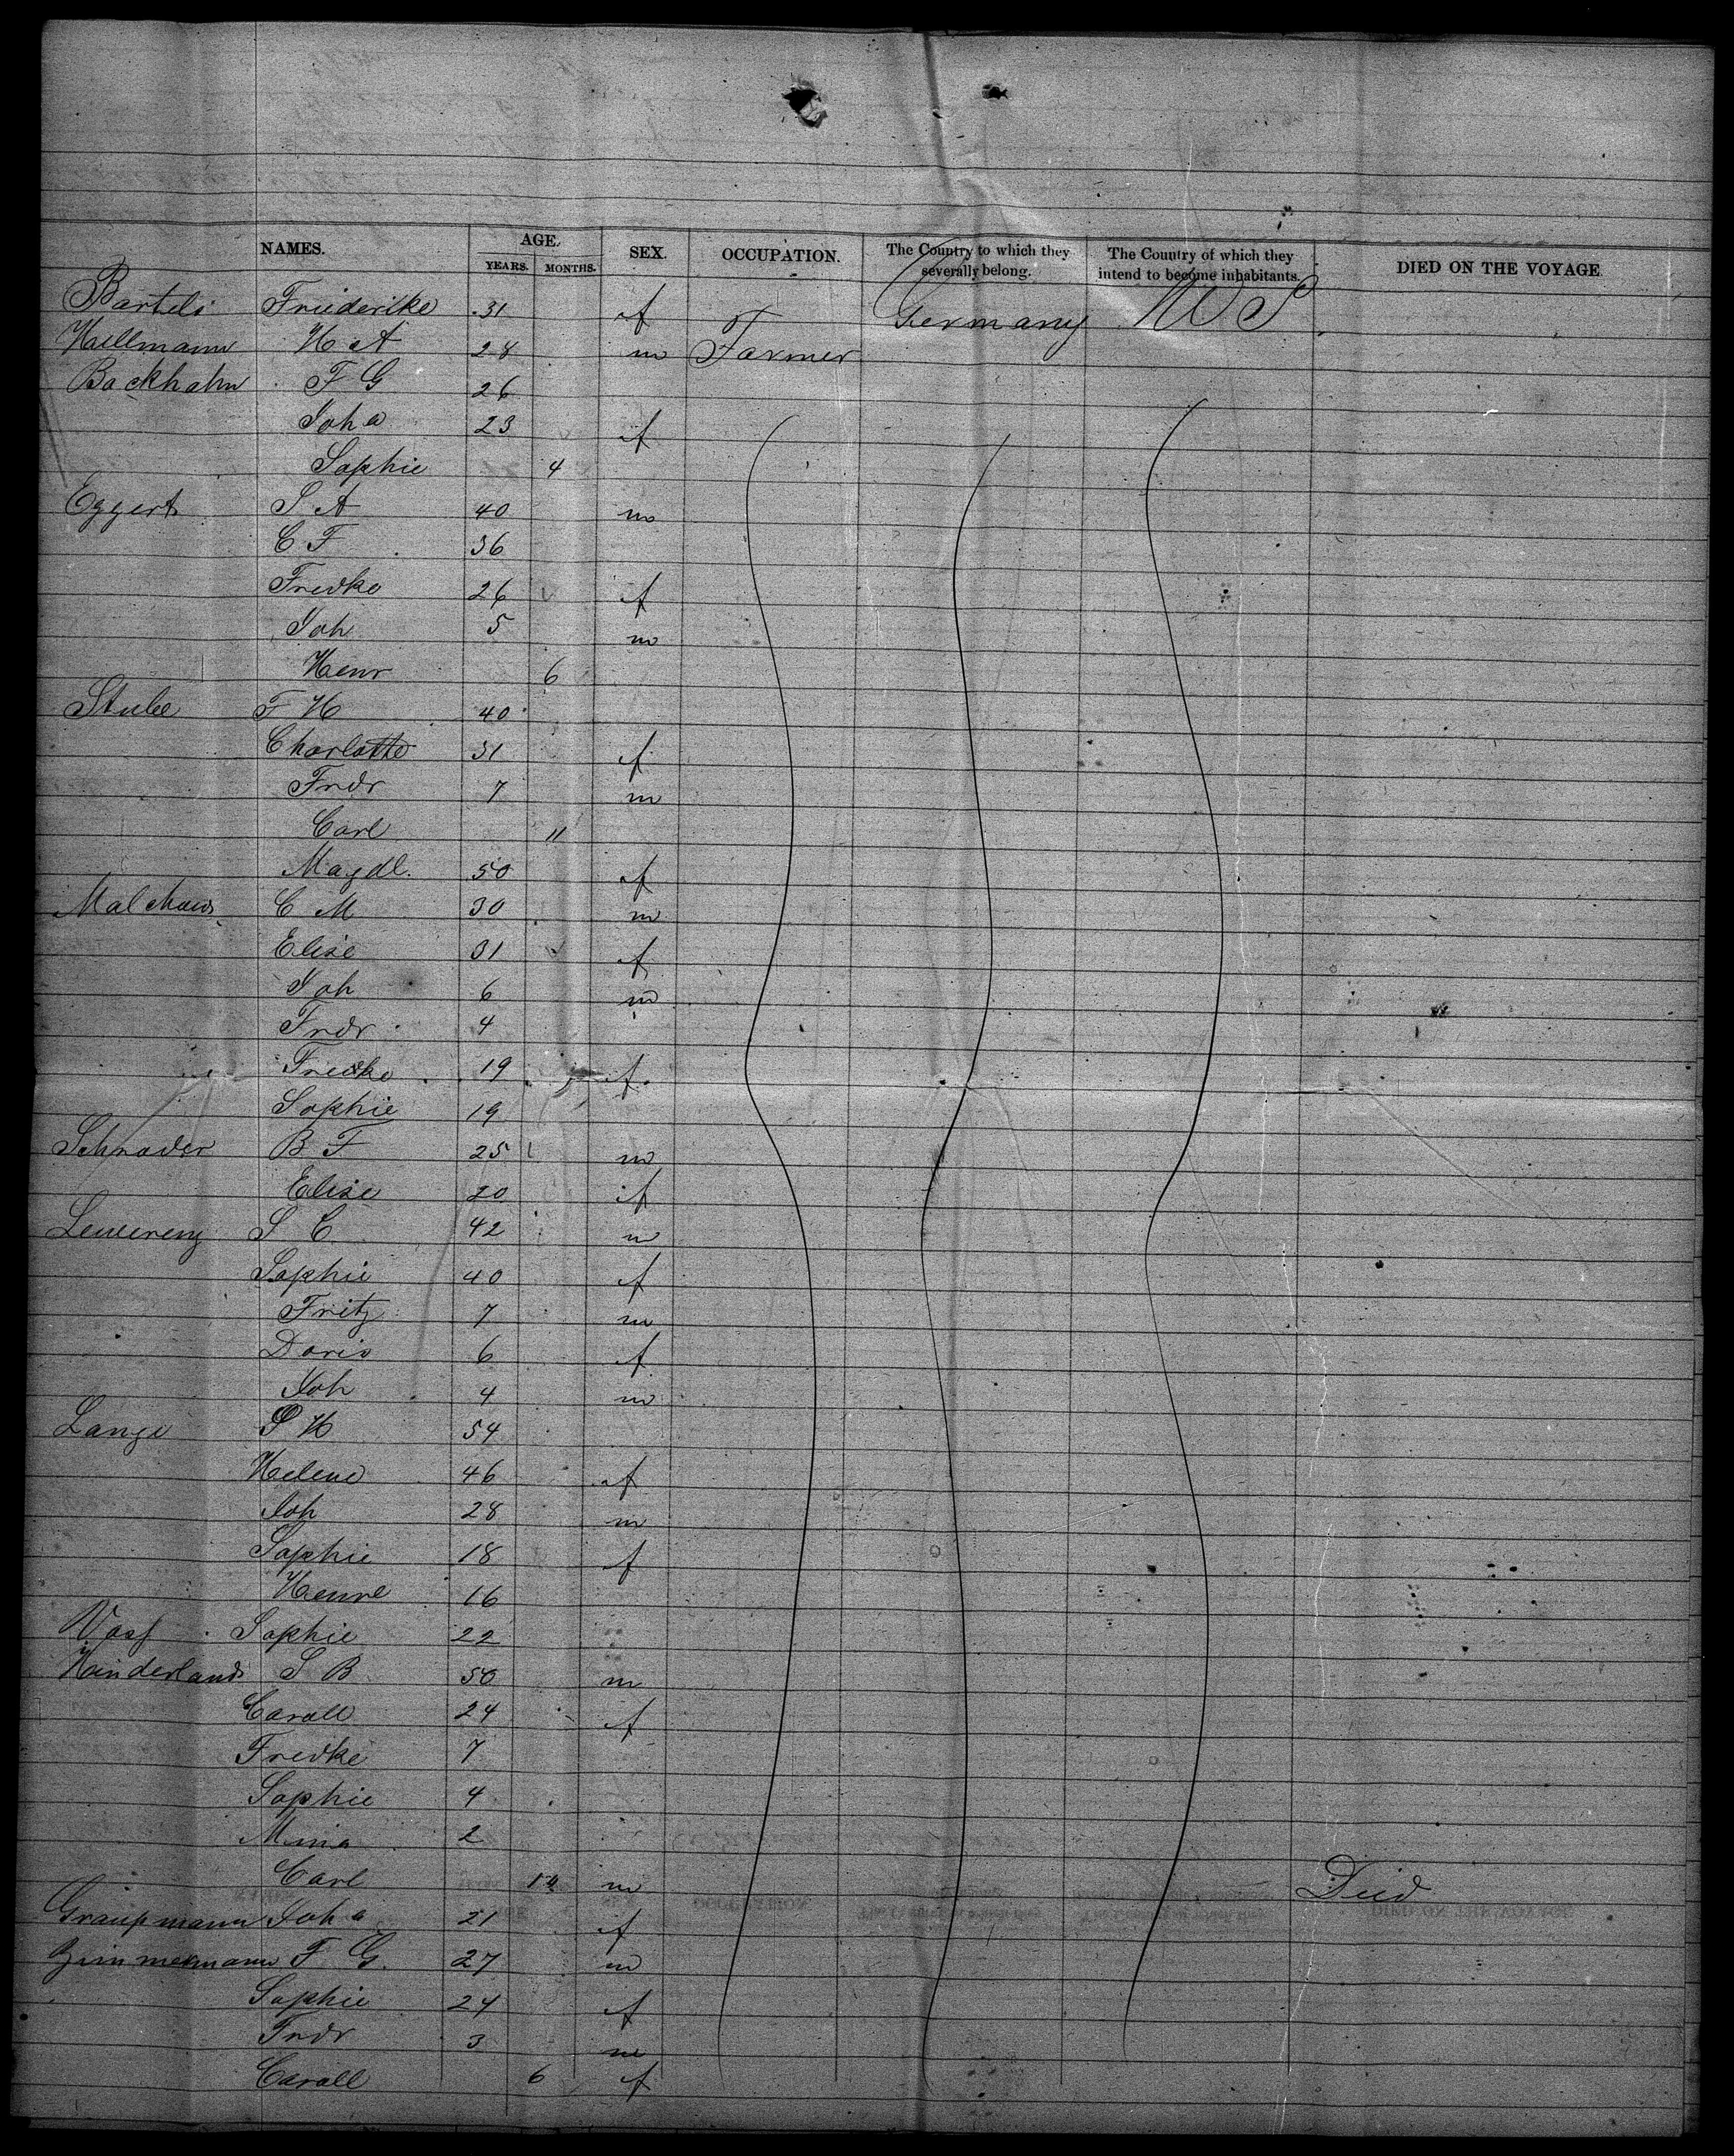 NAMES. AGE. SEX. OCCUPATION. The Country to which they severally belong. The Country of which they intend to become inhabitants. DIED ON THE VOYAGE.
YEARS. MONTHS.
Bartels Friederike 31 f Germany
Hallmann H A 28 m Farmer
Backhahn F G 26
Joha 23 f
Sophie 4
Eggert S A 40 m
C F 36
Fredke 26 f
Joh 5 m
Henr 6
Stube F H 40
Charlotte 31 f
Frdr 7 m
Carl 11
Magdl. 50 f
Malchow C M 30 m
Elise 31 f
Joh 6 m
Frdr 4
Fredke 19 f
Sophie 19
Schrader B F 25 m
Elise 20 f
Lewerenz S C 42 m
Sophie 40 f
Fritz 7 m
Doris 6 f
Joh 4 m
Lange S H 54
Helene 46 f
Joh 28 m
Sophie 18 f
Henre 16
Sophie 22
S B 50 m
Caroll 24 f
Fredke 7
Sophie 4
Mina 2
Carl m Died
Graupmann Joha 21 f
Zimmermann F G. 27 m
Sophie 24 f
Frdr 3 m
Caroll 6 f